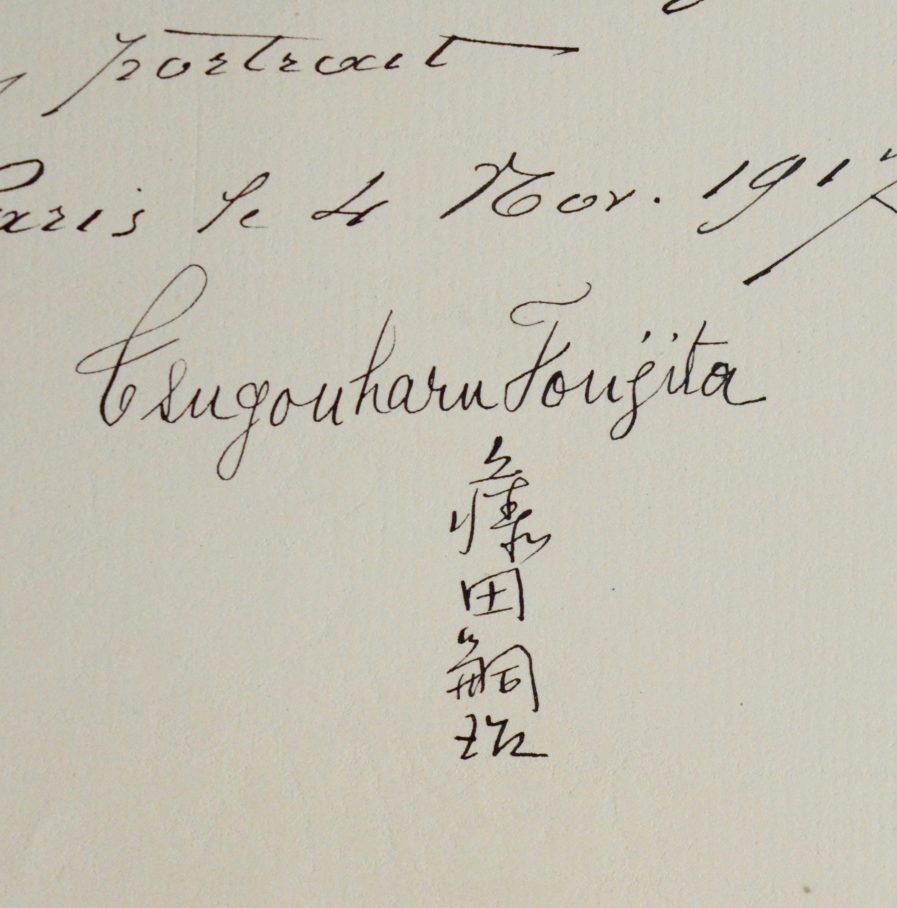 portrait
Paris le 4 Nov. 1917
Tsugouharu Foujita
藤
田
嗣
治